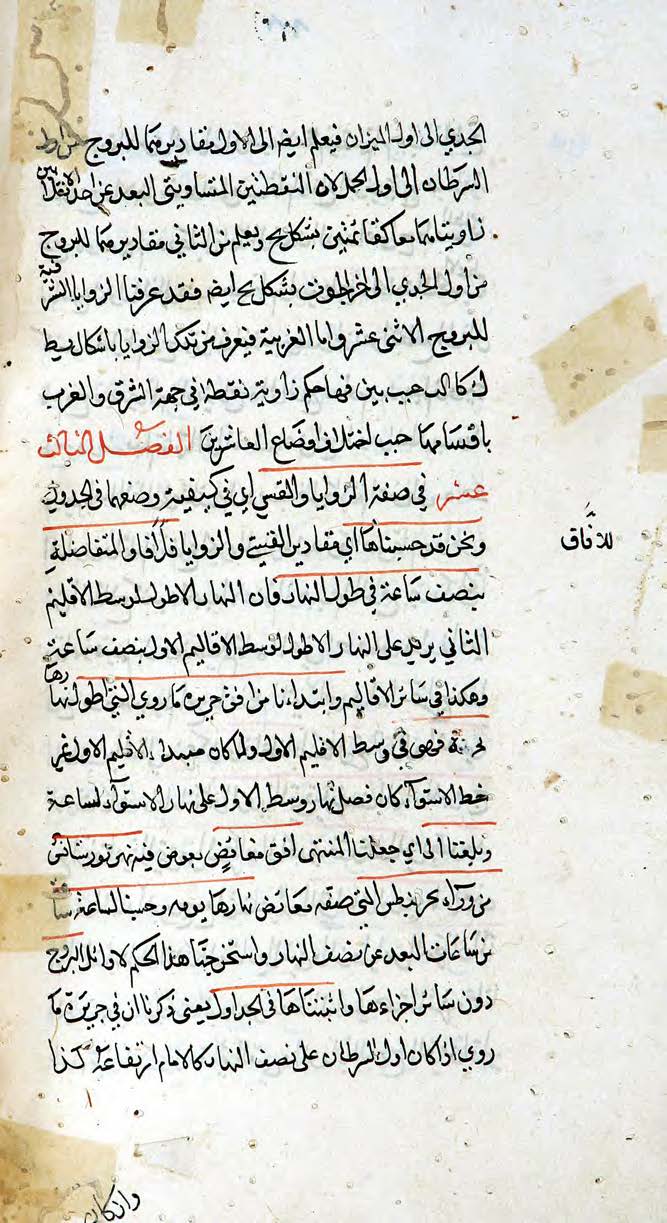 الجدي الى اول الميزان فيعلم ايضه الى الاول مقاديرهما للبروج من اول
السرطان الى اول الحمل لان النقطتين المتساويتى البعد عن احد الانقلابين
زاويتاهما معا كقائمتين بشكل يح ويعلم من الثاني مقاديرهما للبروج
من اول الجدي الى اخر الحوت بشكل يح ايضه فقد عرفنا الزوايا الشرقية
للبروج الاثنى عشر واما الغربية فيعرف من تلك الزوايا باشكال
فيها حكم زاوية نقطة في جهة الشرق والغرب
باقسامها حسب اختلاف اوضاع العاشرين الفصل الثالث
عشر في صفة الزوايا والقسي اي في كيفية وضعها في الجدول
ونحن قد حسبناها اي مقادير القسي والزوايا والمتفاضلة
للافاق
بنصف ساعة في طول النهار فان النهار الاطول لوسط الاقليم
الثاني يزيد على النهار الاطول لوسط الاقاليم الاول بنصف ساعة
وهكذا في سائر الاقاليم وابتداءنا من افق جزيرة ماروي التي اطول نهارها
فهي في وسط الاقليم الاول ولما كان مبدا الاقليم الاول غير
خط الاستواء كان فضل نهار وسط الاول على نهار الاستواء لساعة
وبلغنا الى اي جعلنا المنتهى افق
من وراء بحر نبطس التي نهارها يومه وحسبنا لساعة ساعة
من ساعات البعد عن نصف النهار واستخرجنا هذا الحكم لاوائل البروج
دون سائر اجزاءها واثبتناها في الجداول يعني ذكرنا ان في جزيرة ما
روي اذا كان اول السرطان على نصف النهار كان ارتفاعه كذا
وان كان